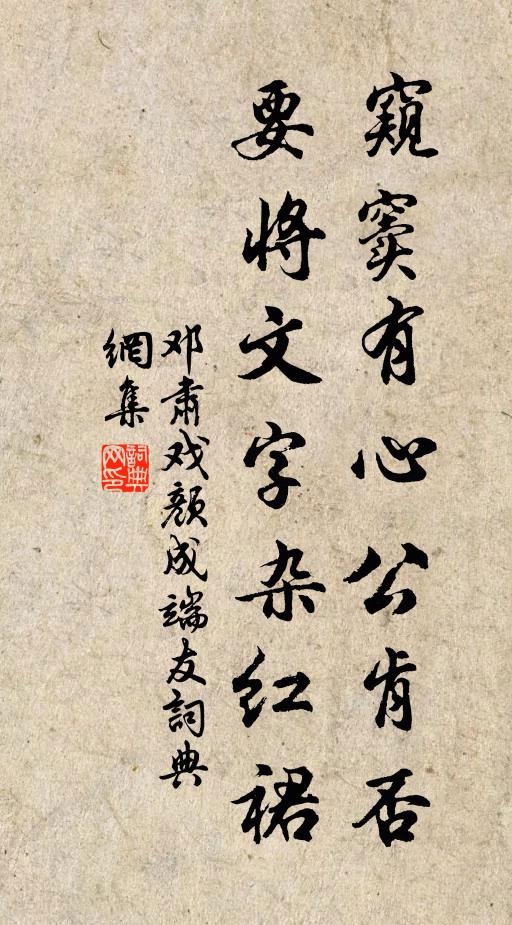 窺窦有心公肯否
要将文字杂红裙
邓肃戏颜成端友詞典
網集
詞典
网印